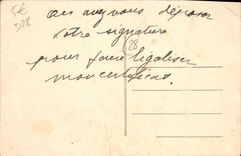 5€
D28
avez vous déposer
votre signature
28
pour faire légaliser
mon certificat.